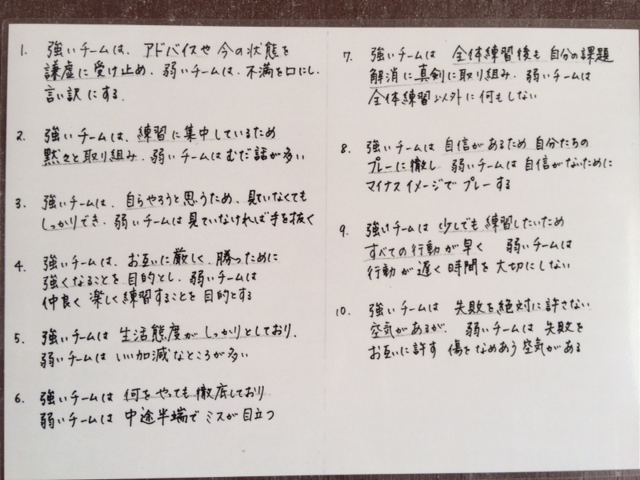 1. 強いチームは、アドバイスや今の状態を
謙虚に受け止め、弱いチームは、不満を口にし、
言い訳にする
2. 強いチームは、練習に集中しているため
黙々と取り組み、弱いチームはむだ話が多い
3. 強いチームは、自らやろうと思うため、見ていなくても
しっかりでき、弱いチームは見ていなければ手を抜く
4. 強いチームは、お互いに厳しく、勝つために
強くなることを目的とし、弱いチームは
仲良く楽しく練習することを目的とする
5. 強いチームは生活態度がしっかりとしており、
弱いチームはいい加減なところが多い
6. 強いチームは何をやっても徹底しており
弱いチームは中途半端でミスが目立つ
7. 強いチームは全体練習後も自分の課題
解消に真剣に取り組み、弱いチームは
全体練習以外に何もしない
8. 強いチームは自信があるため自分たちの
プレーに徹し、弱いチームは自信がないために
マイナスイメージでプレーする
9. 強いチームは少しでも練習したいため
すべての行動が早く 弱いチームは
行動が遅く時間を大切にしない
10. 強いチームは失敗を絶対に許さない
空気があるが、弱いチームは失敗を
お互いに許す傷をなめあう空気がある